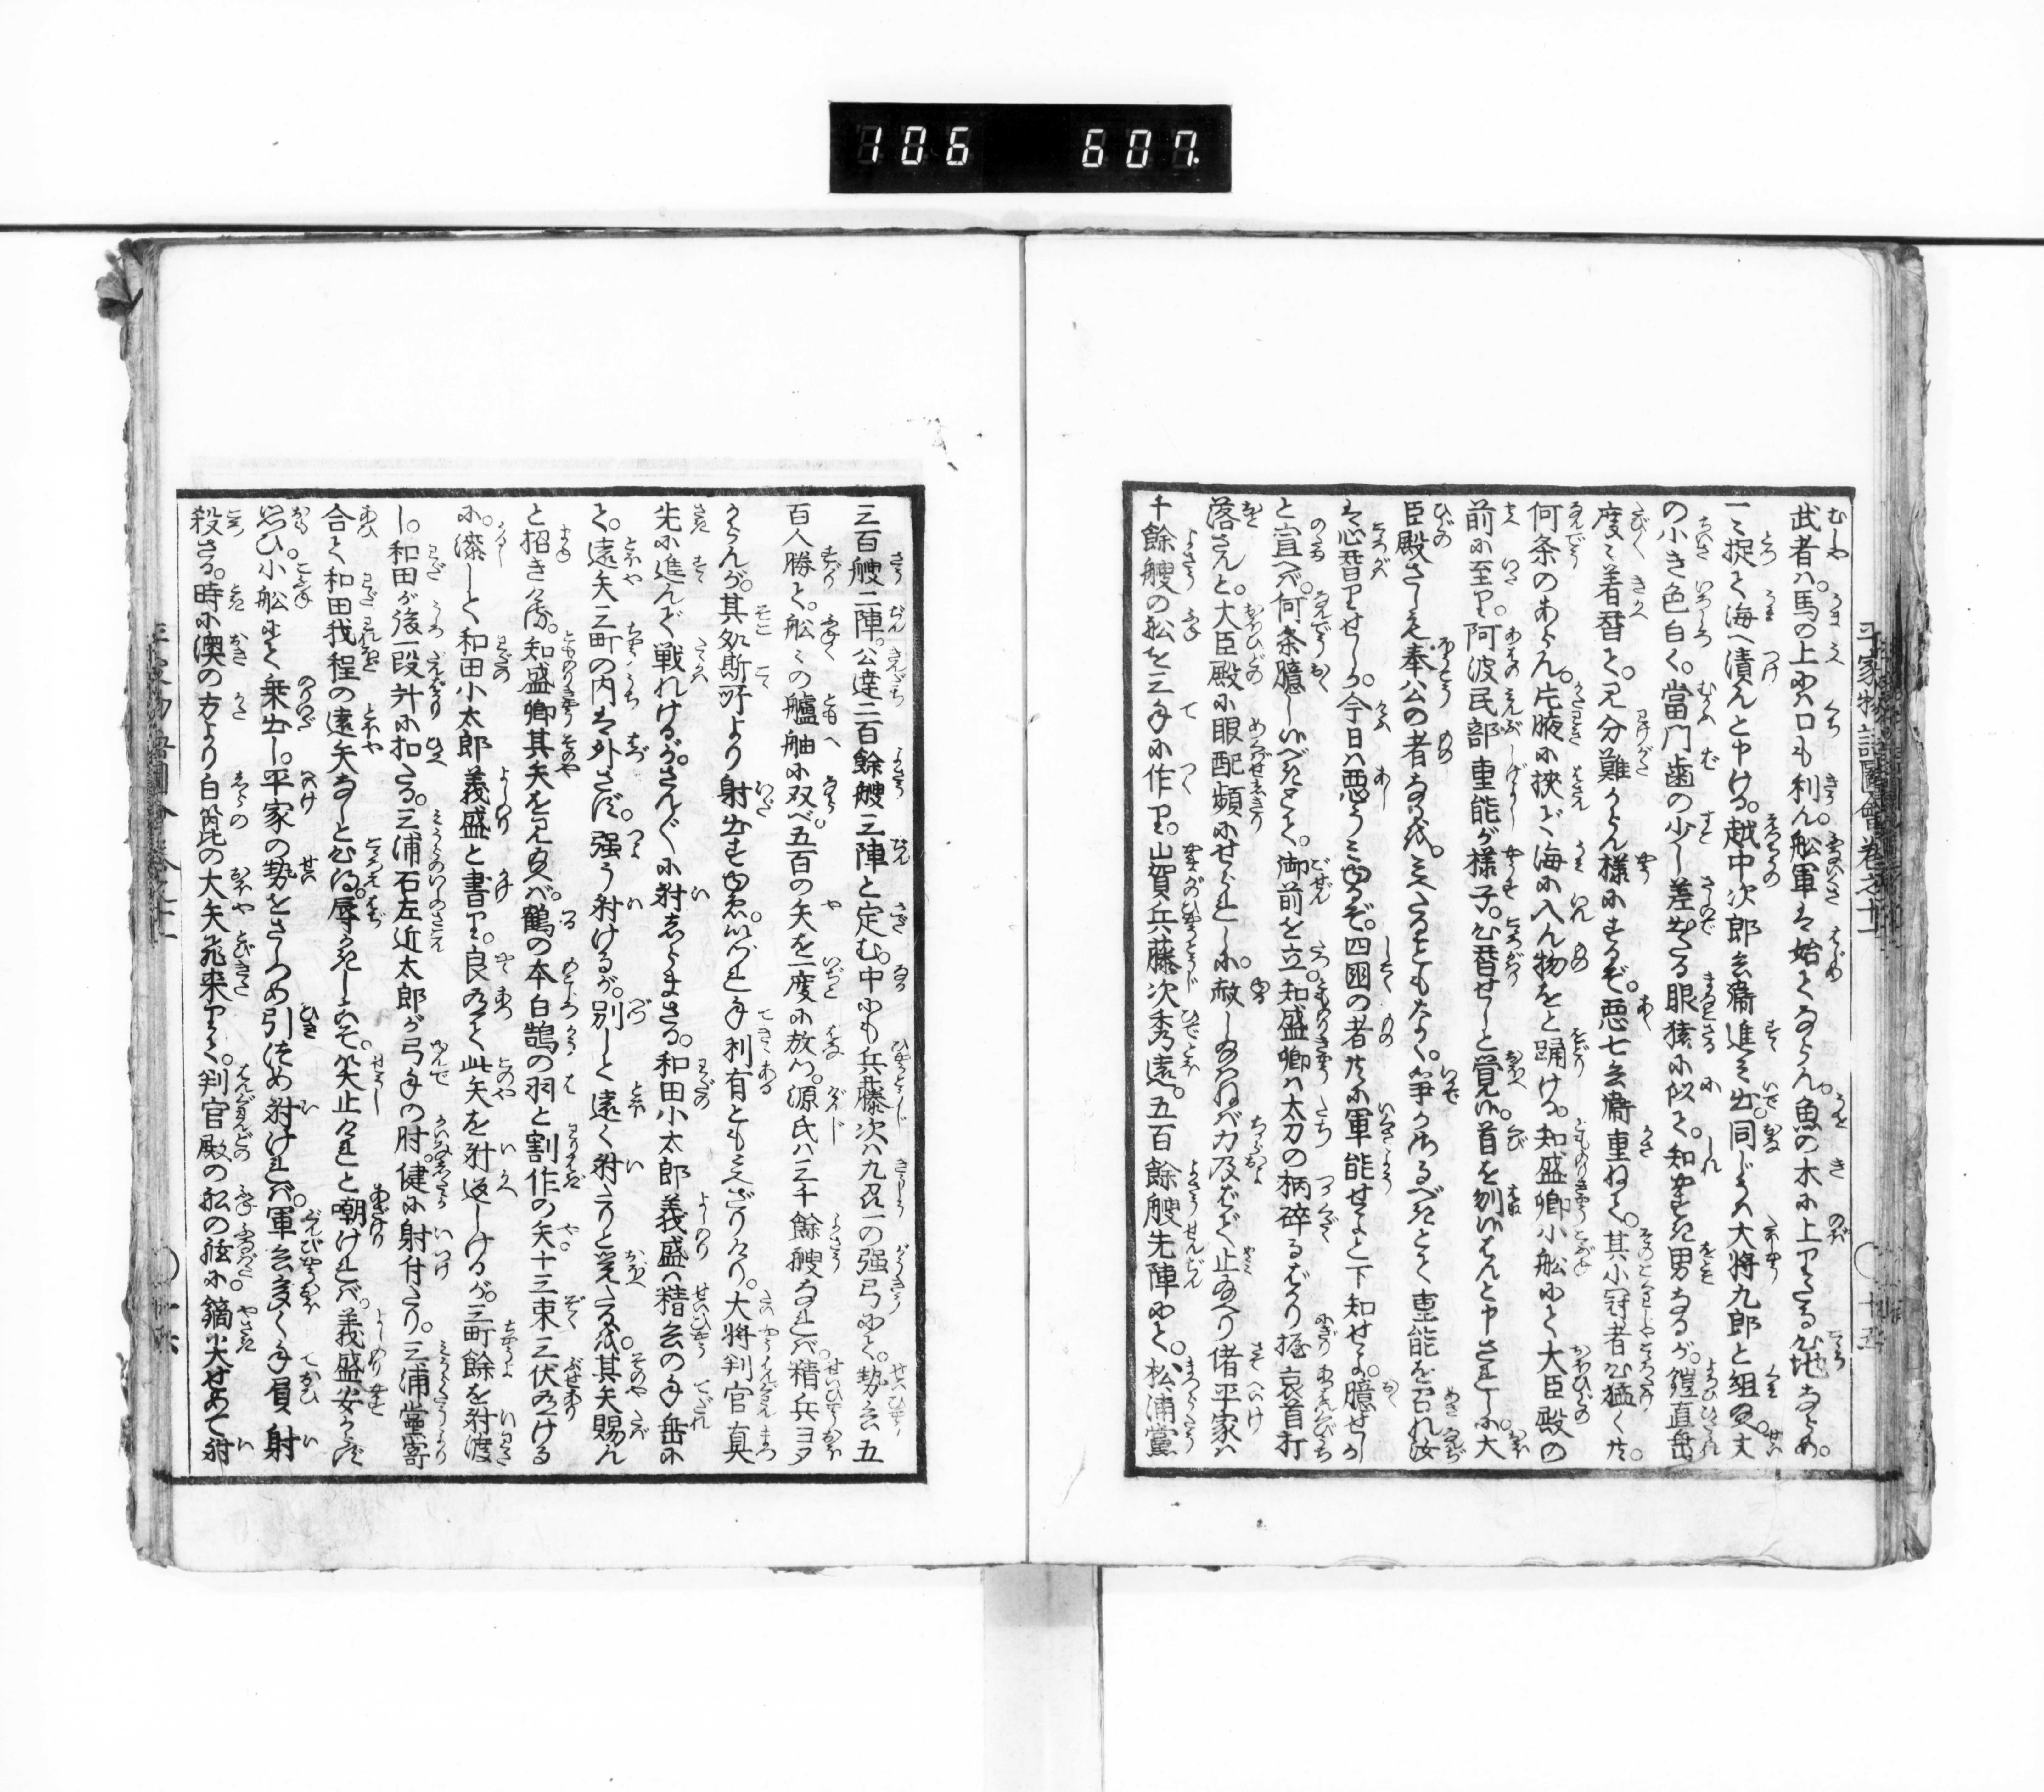 106 607
平家物語圖會巻之十一
十五
武者ハ。馬の上にハ口も利ん。舩軍は始てならん。魚の木に上りたる心地ならめ。
一々捉て海へ漬んと申ける。越中次郎兵衛進み出。同じうハ大将九郎と組め。丈
の小き色白く。當門歯の少し差出たる眼猿に似て。知やすき男なるが。鎧直垂
度々着替て。見分難からん様にするぞ。悪七兵衛重ねて。其小冠者心猛く共。
何条のあらん。片腋に挾で海に入ん物をと踊ける。知盛卿小舩にて大臣殿の
前に至り。阿波民部重能が様子。心替せしと覚ゆ。首を刎ゆはんと申されしに。大
臣殿さしも奉公の者なるを。見へたることもなく。争か斬るべきとて重能を召れ汝
は心替りせしか。今日ハ悪うみゆるぞ。四国の者共に軍能せよと下知せよ。臆せしか
と宣へバ。何条臆しゆべきとて。御前を立。知盛卿ハ太刀の柄碎るばかり握。哀首打
落さんと。大臣殿に眼配頻にせられしに。赦し給ハねバ力及ばで止給へり偖平家ハ
千餘艘の舩を三手に作り。山賀兵藤次秀遠。五百餘艘先陣にて。松浦黨
三百艘二陣。公達二百餘艘三陣と定む。中にも兵藤次ハ九国一の强弓にて。勢兵五
百人勝て。舩々の艫舳に双べ五百の矢を一度に放つ。源氏ハ三千餘艘なれバ。精兵ヨタ
からんが。其処斯所より射出す間。いづれ手利有とも見ざりけり。大将判官真
先に進んで戦れけるが。さんざんに射しらまさる。和田小太郎義盛ハ精兵の手垂に
て。遠矢三町の内は外さず。强う射けるが。別して遠く射たりと覚たるを。其矢賜ん
と招きける。知盛卿其矢を見給へバ。鶴の本白鵠の羽と割作の矢十三束三伏なける
に。漆して和田小太郎義盛と書り。良有て此矢を射返しけるが。三町餘を射渡
し。和田が後一段計に扣たる。三浦石左近太郎が弓手の肘。健に射付たり。三浦黨寄
合て和田我程の遠矢なしと心得。辱かきしこそ。笑止けれと嘲けれバ。義盛安からず
思ひ。小舩にて乗出し。平家の勢をさしつめ引つめ射けれバ。軍兵多く手負射
殺さる。時に澳の方より白箆の大矢飛来りて。判官殿の舩の舷に。鏑失せあて射